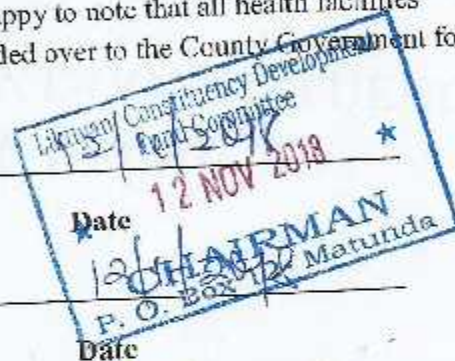 ppy to note that all health facilities
ded over to the County Government fo
Likuyani Constituency Development
Fund Committee
12 NOV 2018
Date
CHAIRMAN
P. O. Box Matunda
Date